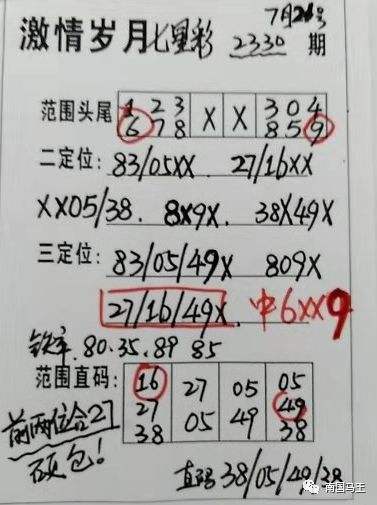 7月24号
激情岁月七星彩 2330 期
范围头尾 1 2 3 X X 3 0 4
6 7 8 8 5 9
二定位: 83/05XX 27/16XX
XX05/38. 8X9X. 38X49X
三定位: 83/05/49X 809X
27/16/49X. 中6XX9
铁率. 80.35.89 85
范围直码: 16 27 05 05
27 05 49 49
38 38
前两位合27
硬包!
直码 38/05/49/38
南国鸟王